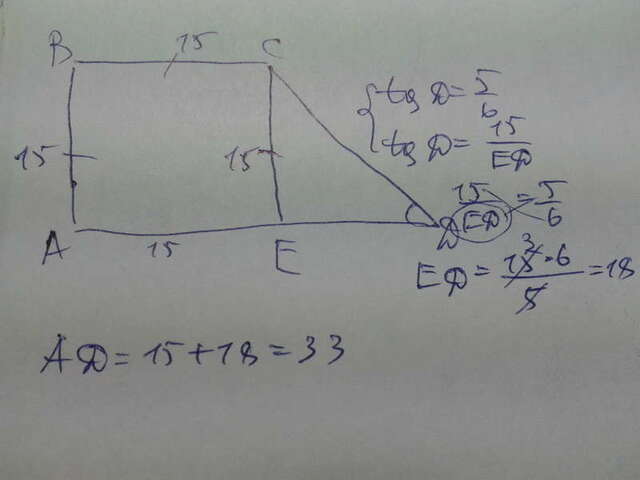 B 15 C
15 15
A 15 E D
tg D = 5/6
tg D = 15/ED
15/ED = 5/6
ED = 15³·6/5 = 18
AD = 15 + 18 = 33